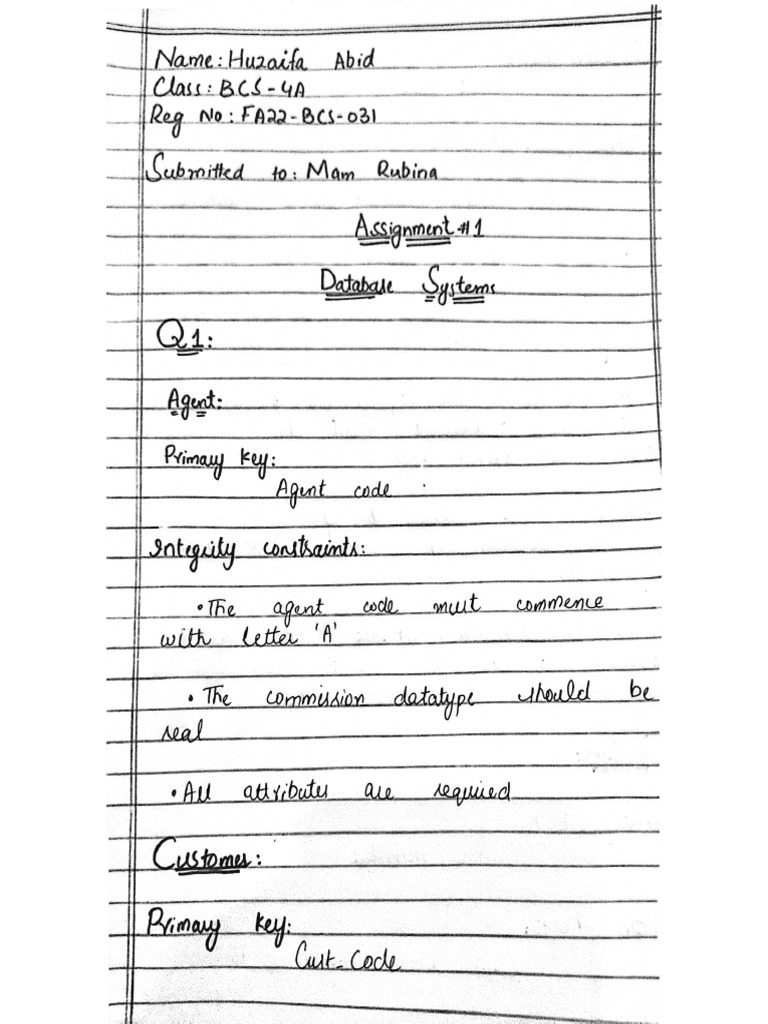 Name: Huzaifa Abid
Class: BCS-4A
Reg No: FA22-BCS-031
Submitted to: Mam Rubina
Assignment #1
Database Systems
Q1:
Agent:
Primary key:
Agent code
Integrity constraints:
• The agent code must commence
with letter 'A'
• The commission datatype should be
real
• All attributes are required
Customer:
Primary key:
Cust_Code